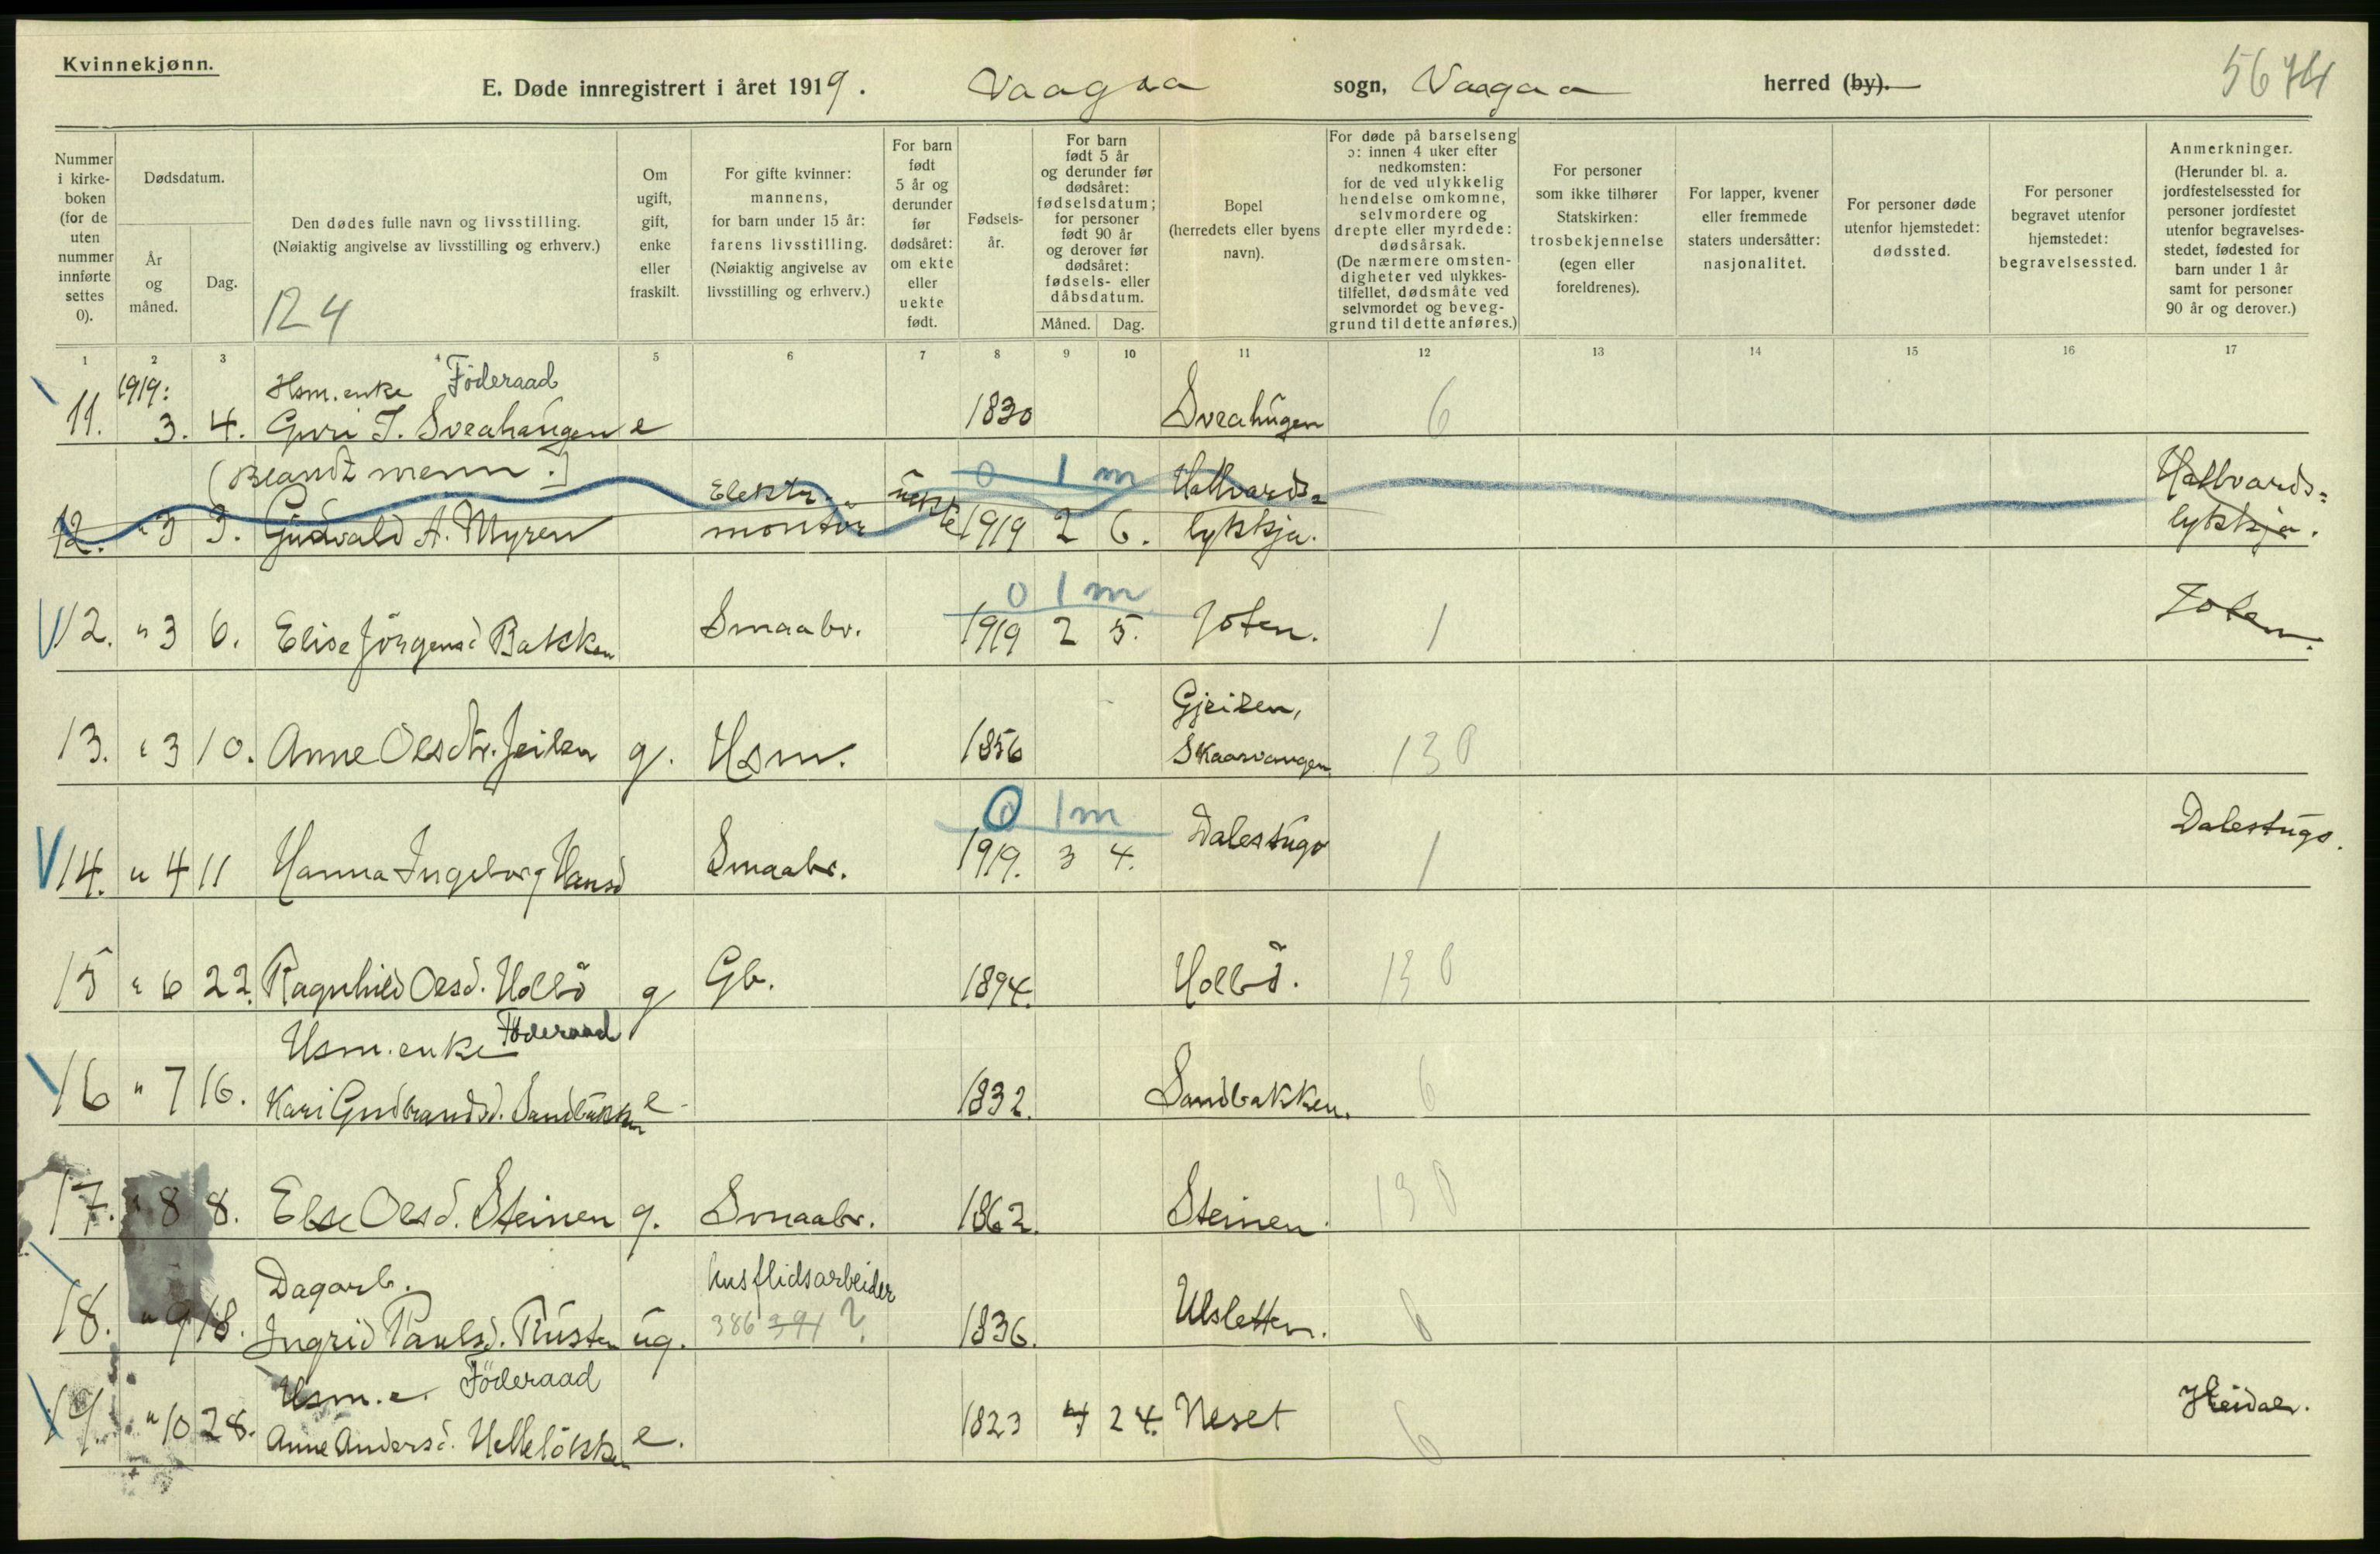 Kvinnekjønn.
E. Døde innregistrert i året 1919. Vaagaa sogn, Vaagaa herred (by).
5674
Nummer i kirke-boken (for de uten nummer innførte settes 0).
Dødsdatum.
År og måned.
Dag.
Den dødes fulle navn og livsstilling.
(Nøiaktig angivelse av livsstilling og erhverv.)
124
Om ugift, gift, enke eller fraskilt.
For gifte kvinner: mannens, for barn under 15 år: farens livsstilling. (Nøiaktig angivelse av livsstilling og erhverv.)
For barn født 5 år og derunder før dødsåret: om ekte eller uekte født.
Fødsels-år.
For barn født 5 år og derunder før dødsåret: fødselsdatum; for personer født 90 år og derover før dødsåret: fødsels- eller dåbsdatum.
Måned. Dag.
Bopel (herredets eller byens navn).
For døde på barselseng ɔ: innen 4 uker efter nedkomsten: for de ved ulykkelig hendelse omkomne, selvmordere og drepte eller myrdede: dødsårsak. (De nærmere omsten-digheter ved ulykkes-tilfellet, dødsmåte ved selvmordet og beveg-grund til dette anføres.)
For personer som ikke tilhører Statskirken: trosbekjennelse (egen eller foreldrenes).
For lapper, kvener eller fremmede staters undersåtter: nasjonalitet.
For personer døde utenfor hjemstedet: dødssted.
For personer begravet utenfor hjemstedet: begravelsessted.
Anmerkninger. (Herunder bl. a. jordfestelsessted for personer jordfestet utenfor begravelses-stedet, fødested for barn under 1 år samt for personer 90 år og derover.)
1 2 3 4 5 6 7 8 9 10 11 12 13 14 15 16 17
1919: Hsm. enke Föderaad
11. 3. 4. Guri T. Sveahaugen e 1830 Sveahugen 6
(Blandt menn.) Elektr. uekte 0 1 m Hallvards= Hallvards=
12. " 3 3. Gudvald A. Myren montör 1919 2 6. lykkja. lykkja.
0 1 m
12. " 3 6. Elise Jörgensd Bakken Smaabr. 1919 2 5. Joten. Joten.
Gjeilen,
13. " 3 10. Anne Olsdtr. Jeilen g. Hsm. 1856 Skaarvangen 130
0 1 m
14. " 4 11 Hanna Ingeborg Hansd Smaabr. 1919. 3 4. Dalestugo 1 Dalestugo.
15 " 6 22. Ragnhild Olsd. Holbö g Gb. 1894. Holbö. 130
Hsm. enke Föderaad
16 " 7 16. Kari Gudbrandsd. Sandbakken e 1832. Sandbakken. 6
17. " 8 8. Else Olsd. Steinen g. Smaabr. 1862. Steinen 130
Dagarb. husflidsarbeider
18. " 9 18. Ingrid Paulsd. Rusten ug. 386 391 ? 1836. Ulsletten. 6
Hsm. e. Föderaad
19. " 10 28. Anne Andersd. Hellelökken e. 1823 4 24. Neset 6 Heidal.